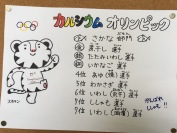 カルシウム オリンピック
さかな部門
金 煮干し 選手
銀 たたみいわし 選手
銅 いかなご 選手
4位 あゆ(焼) 選手
5位 わかさぎ 選手
6位 いわし(丸干) 選手
7位 ししゃも 選手
8位 いわし(油漬) 選手
がんばれ
ししゃも!!
スホラン